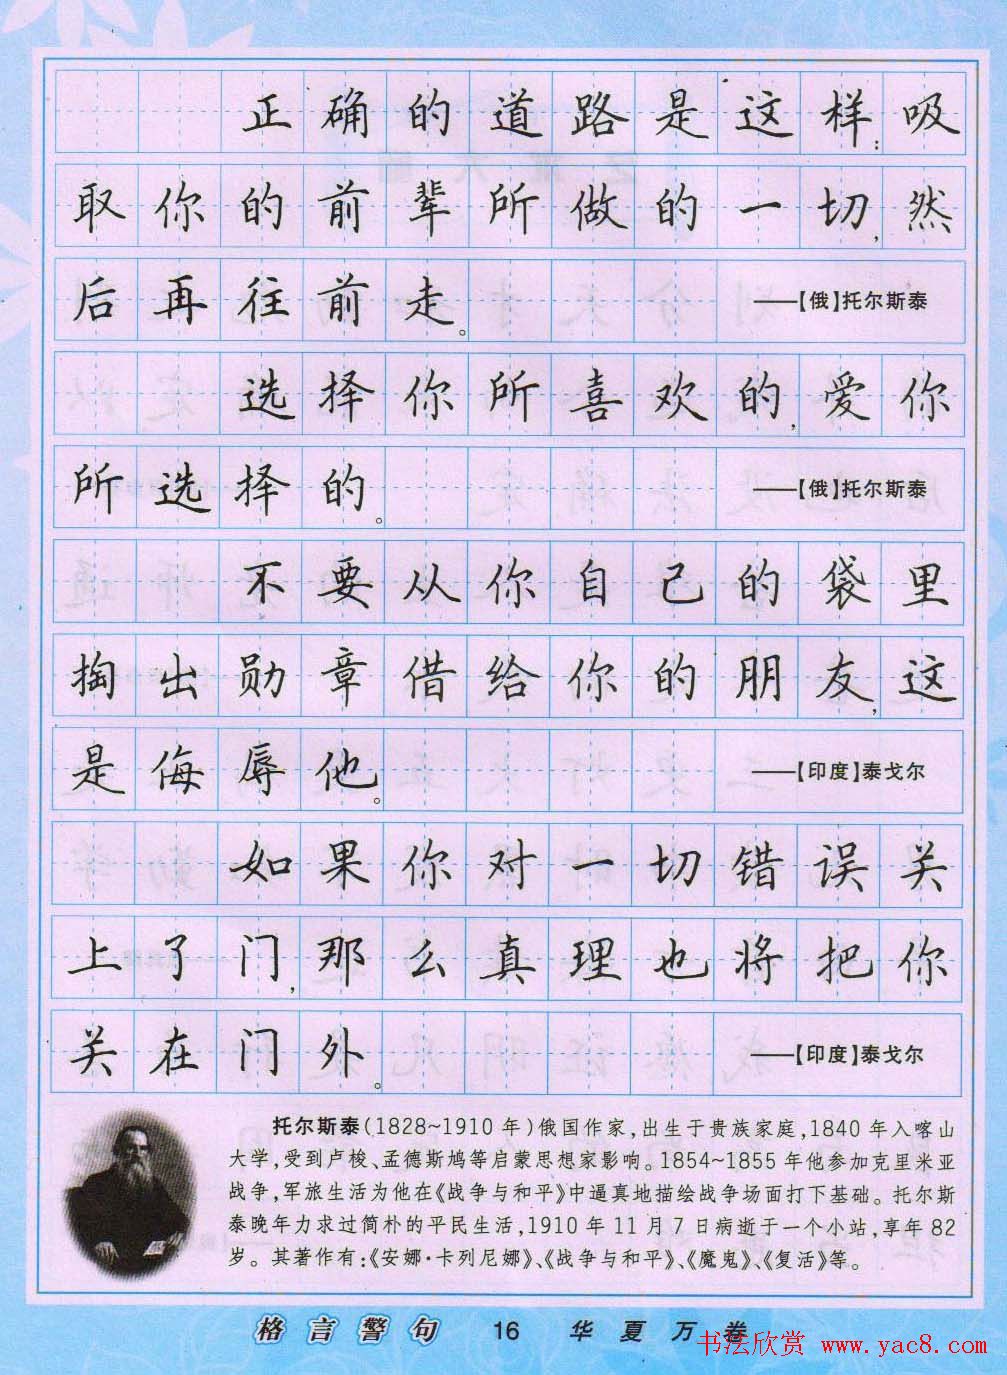 正确的道路是这样:吸
取你的前辈所做的一切,然
后再往前走。 ——【俄】托尔斯泰
选择你所喜欢的,爱你
所选择的。 ——【俄】托尔斯泰
不要从你自己的袋里
掏出勋章借给你的朋友,这
是侮辱他。 ——【印度】泰戈尔
如果你对一切错误关
上了门,那么真理也将把你
关在门外。 ——【印度】泰戈尔
托尔斯泰(1828~1910年)俄国作家,出生于贵族家庭,1840年入喀山
大学,受到卢梭、孟德斯鸠等启蒙思想家影响。1854~1855年他参加克里米亚
战争,军旅生活为他在《战争与和平》中逼真地描绘战争场面打下基础。托尔斯
泰晚年力求过简朴的平民生活,1910年11月7日病逝于一个小站,享年82
岁。其著作有:《安娜·卡列尼娜》、《战争与和平》、《魔鬼》、《复活》等。
格言警句 16 华夏万卷
书法欣赏 www.yac8.com